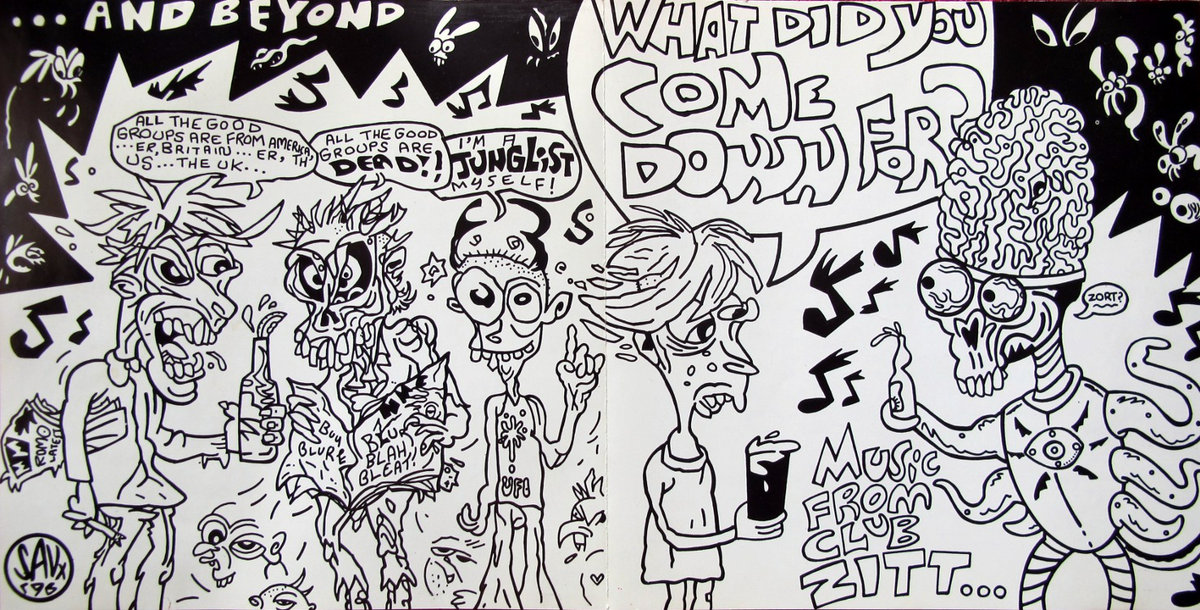 ...AND BEYOND
ALL THE GOOD
GROUPS ARE FROM AMERICA,
...ER, BRITAIN...ER, TH
US...THE UK...
ALL THE GOOD
GROUPS ARE
DEAD!!
I'M A
JUNGLIST
MYSELF!
WHAT DID YOU
COME
DOWN FOR?
ZORT?
BUY
BLURE
BLUR
BLAH,
BLEAT!
UFO
MUSIC
FROM
CLUB
ZITT...
SAVX
'96